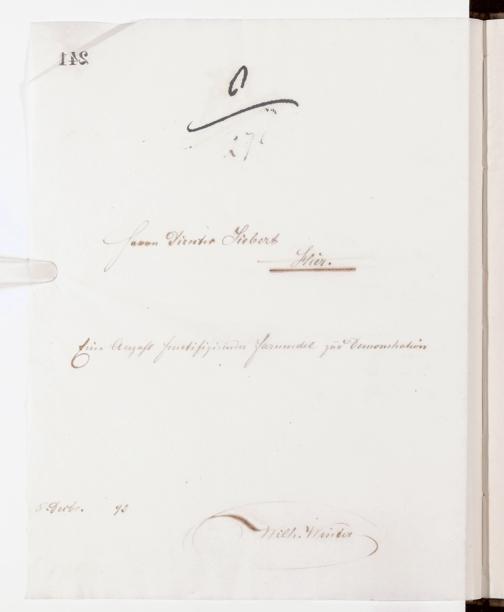 241
Herrn Director Siebert
Hier.
Eine Anzahl fructifizirender Farnwedel zur Demonstration
5 Decbr. 93
Wilh. Winter